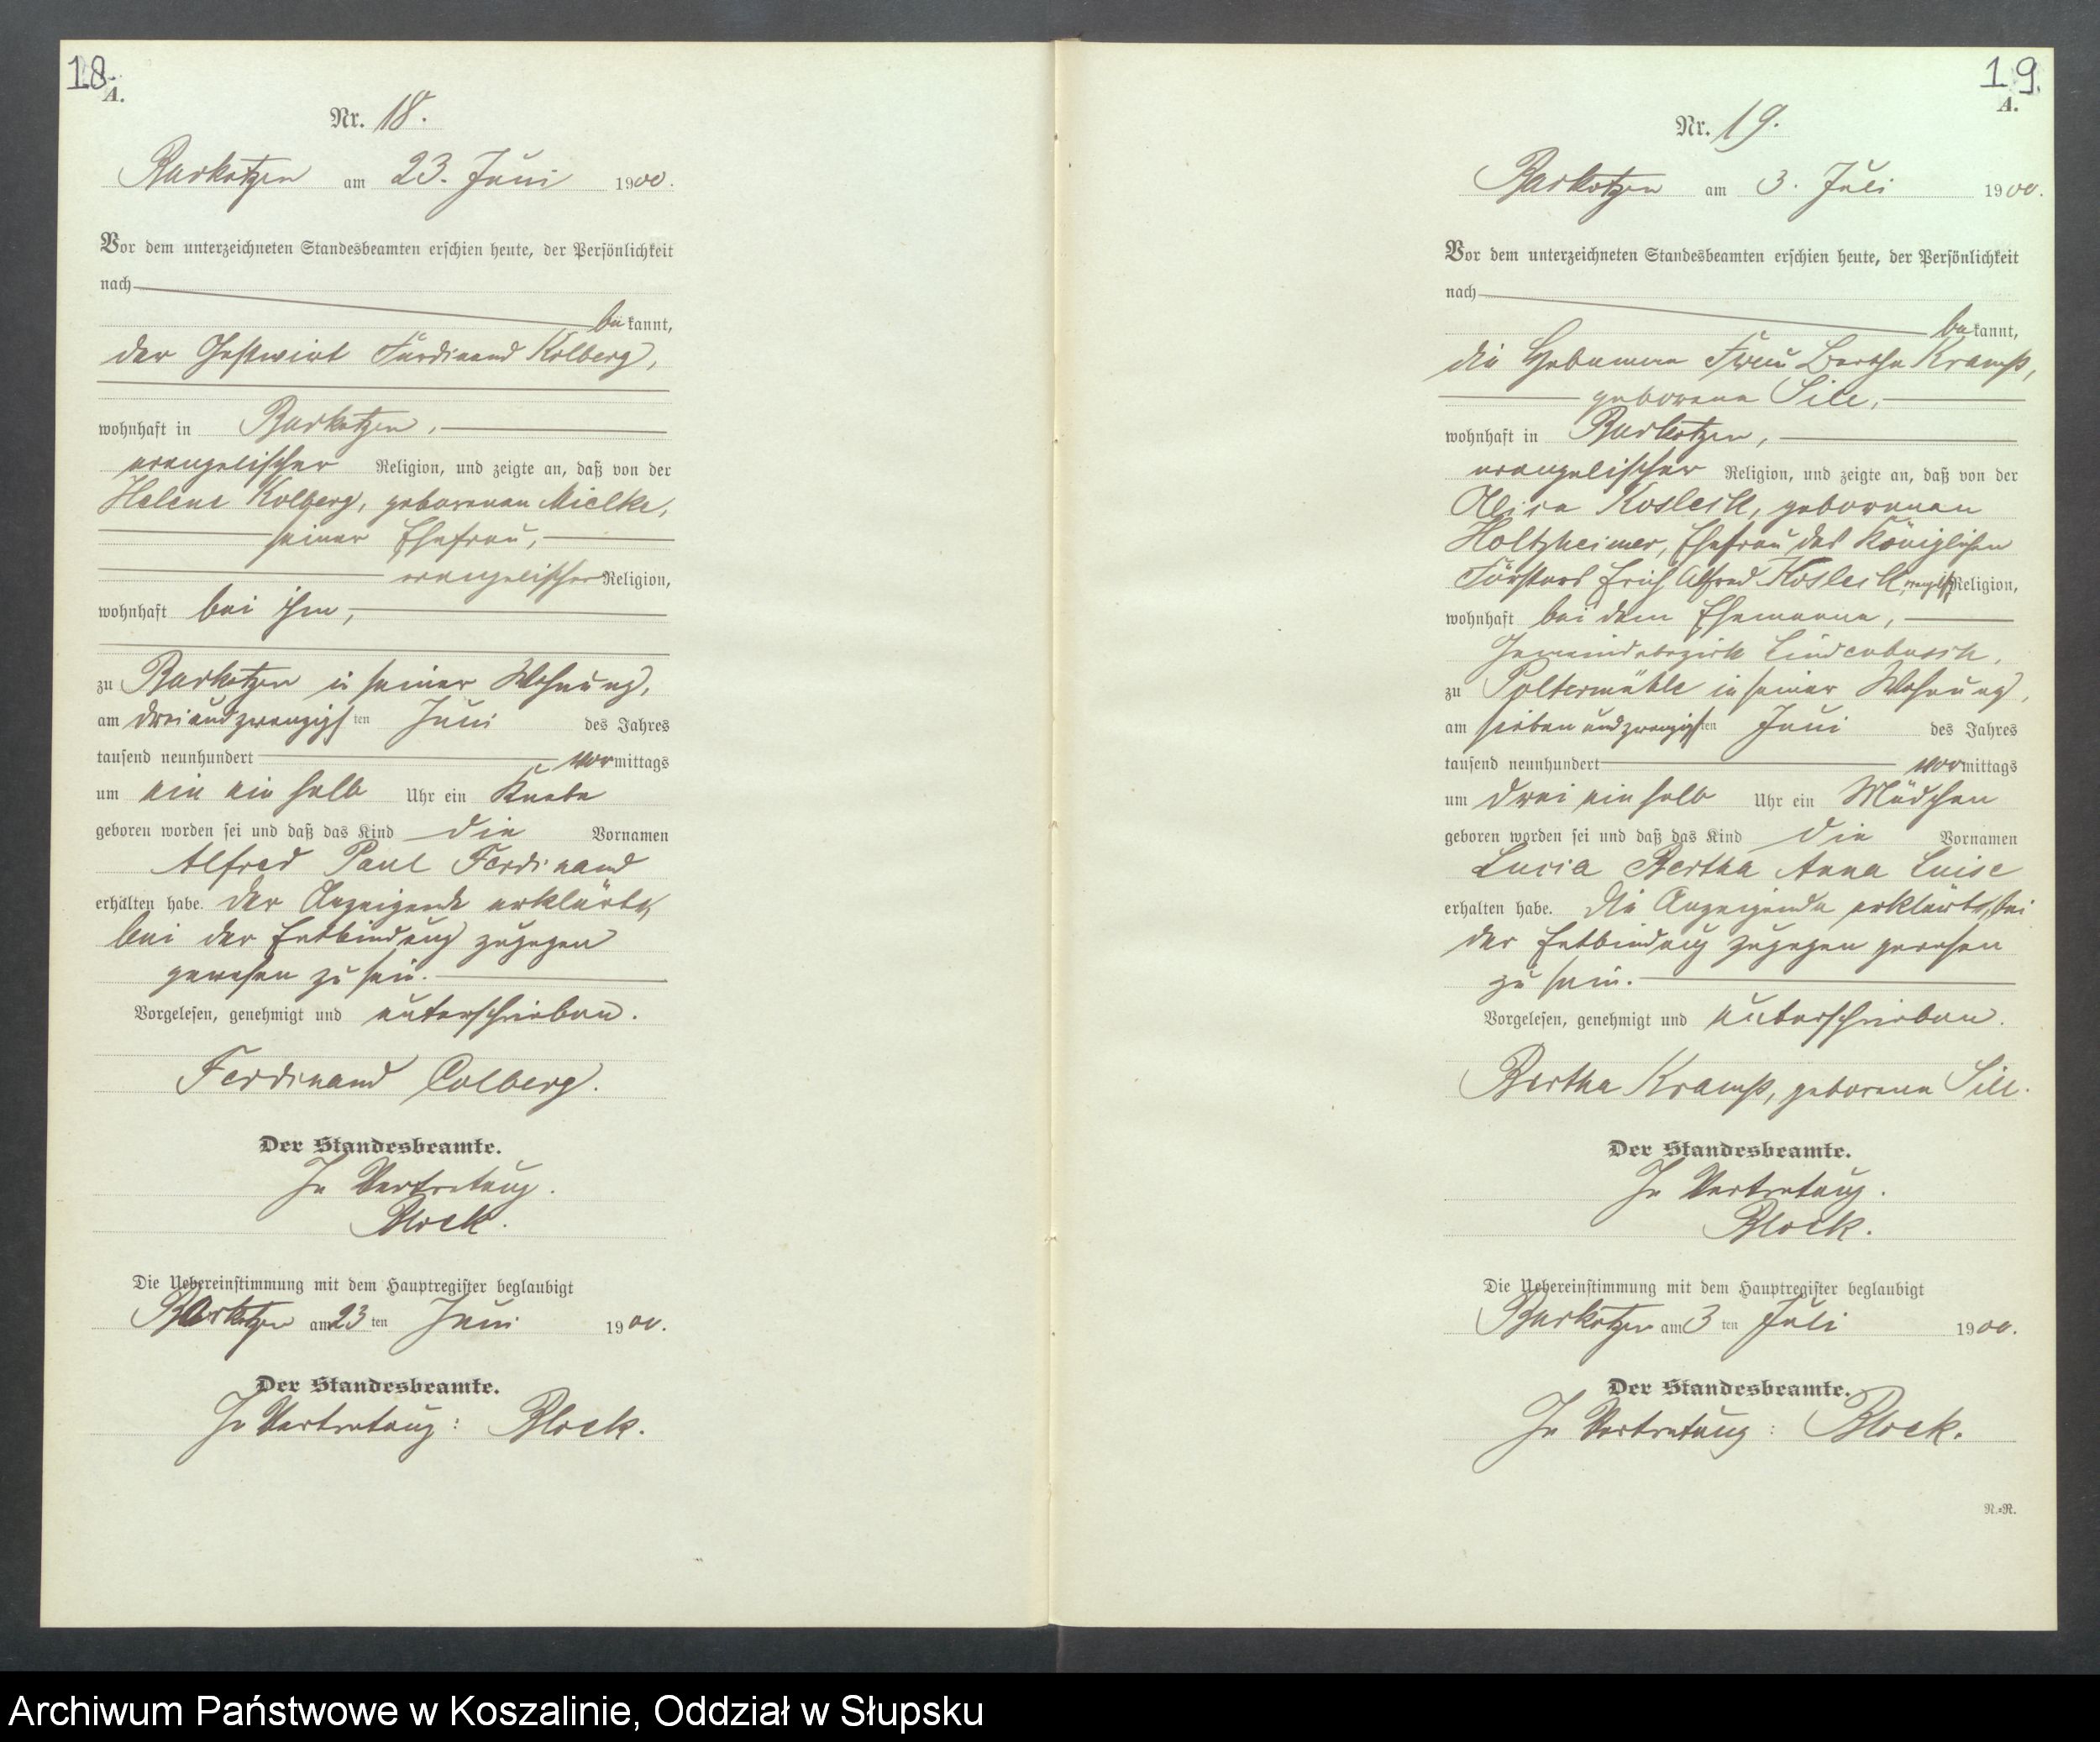 18.
A.
Nr. 18.
Barkotzen am 23. Juni 1900.
Vor dem unterzeichneten Standesbeamten erschien heute, der Persönlichkeit
nach
bekannt,
der Gastwirt Ferdinand Kolberg,
wohnhaft in Barkotzen,
evangelischer Religion, und zeigte an, daß von der
Helene Kolberg, geborenen Mielke,
seiner Ehefrau,
evangelischer Religion,
wohnhaft bei ihm,
zu Barkotzen in seiner Wohnung,
am dreiundzwanzigsten Juni des Jahres
tausend neunhundert vormittags
um ein ein halb Uhr ein Knabe
geboren worden sei und daß das Kind die Vornamen
Alfred Paul Ferdinand
erhalten habe. Der Anzeigende erklärte,
bei der Entbindung zugegen
gewesen zu sein.
Vorgelesen, genehmigt und unterschrieben.
Ferdinand Colberg.
Der Standesbeamte.
In Vertretung.
Block.
Die Uebereinstimmung mit dem Hauptregister beglaubigt
Barkotzen am 23 ten Juni 1900.
Der Standesbeamte.
In Vertretung: Block.
19.
A.
Nr. 19.
Barkotzen am 3. Juli 1900.
Vor dem unterzeichneten Standesbeamten erschien heute, der Persönlichkeit
nach
bekannt,
die Hebamme Frau Bertha Kramp,
geborene Sill,
wohnhaft in Barkotzen,
evangelischer Religion, und zeigte an, daß von der
Kosleck, geborenen
Holtzheimer, Ehefrau des Königlichen
Försters Erich Alfred Kosleck, Religion,
wohnhaft bei dem Ehemanne,
Gemeindebezirk Lindenbusch,
zu Poltermühle in seiner Wohnung,
am siebenundzwanzigsten Juni des Jahres
tausend neunhundert vormittags
um drei ein halb Uhr ein Mädchen
geboren worden sei und daß das Kind die Vornamen
Lucia Bertha Anna Luise
erhalten habe. Die Anzeigende erklärte, bei
der Entbindung zugegen gewesen
zu sein.
Vorgelesen, genehmigt und unterschrieben.
Bertha Kramp, geborene Sill.
Der Standesbeamte.
In Vertretung.
Block.
Die Uebereinstimmung mit dem Hauptregister beglaubigt
Barkotzen am 3 ten Juli 1900.
Der Standesbeamte.
In Vertretung: Block.
N.=R.
Archiwum Państwowe w Koszalinie, Oddział w Słupsku